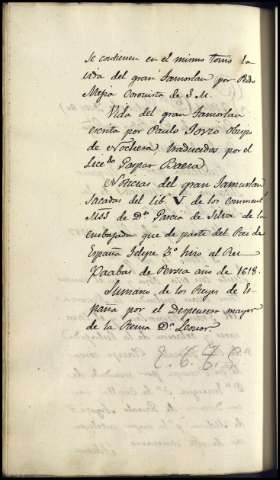 se contienen en el mismo tomo la
vida del gran Tamorlan por Pedro
Mexia Coronista de S. M.
Vida del gran Tamorlan
escrita por Paulo Jovio Obispo
de Nochera traducidas por el
Licdo Gaspar Baeza
Noticias del gran Tamurlan
sacadas del lib. V de los comment.
MSS de Dn Garcia de Silva de la
embajada que de parte del Rei de
España Felipe 3º hizo al Rei
Xaabas de Persia año de 1618.
Sumario de los Reyes de Es-
paña por el Despensero mayor
de la Reina Dª Leonor